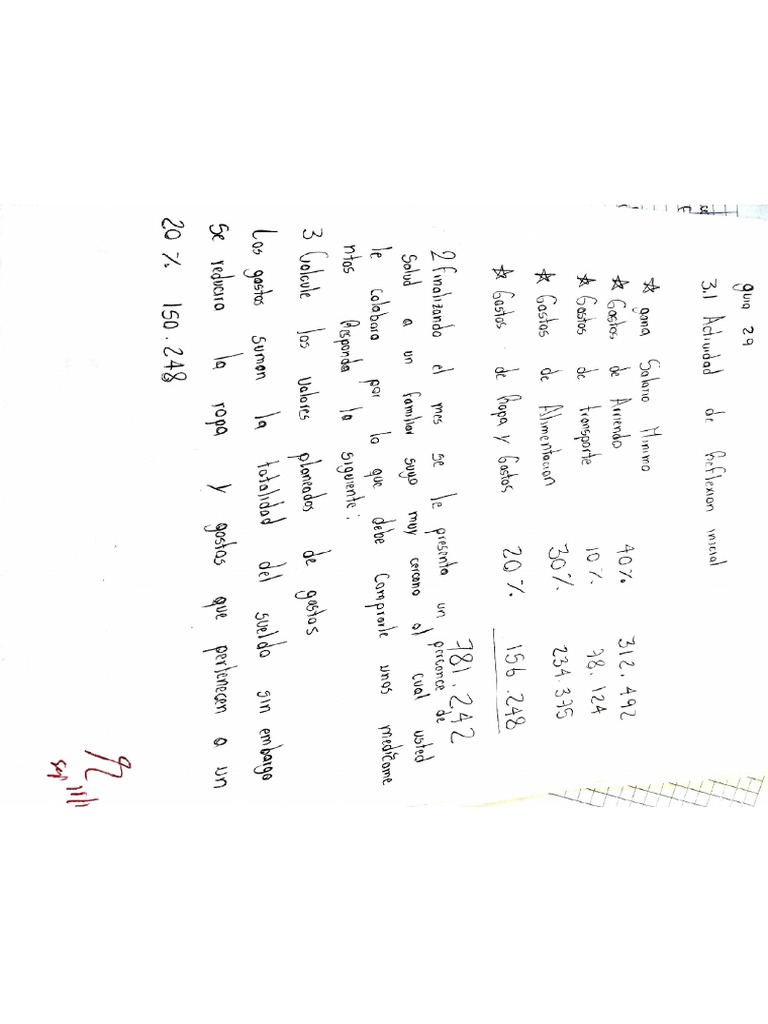 guia 29
3.1 Actividad de Reflexion inicial
☆ gana Salario Minimo
☆ Gastos de Arriendo 40% 312.492
☆ Gastos de transporte 10% 78.124
☆ Gastos de Alimentacion 30% 234.375
☆ Gastos de Ropa y Gastos 20% 156.248
781.242
2 finalizando el mes se le presenta un percance de
Salud a un familiar suyo muy cercano al cual usted
le colabora por lo que debe Comprarle unos medicame
ntos Responda lo siguiente:
3 Calcule los valores planeados de gastos
Los gastos suman la totalidad del sueldo sin embargo
Se reducira la ropa y gastos que pertenecen a un
20% 150.248